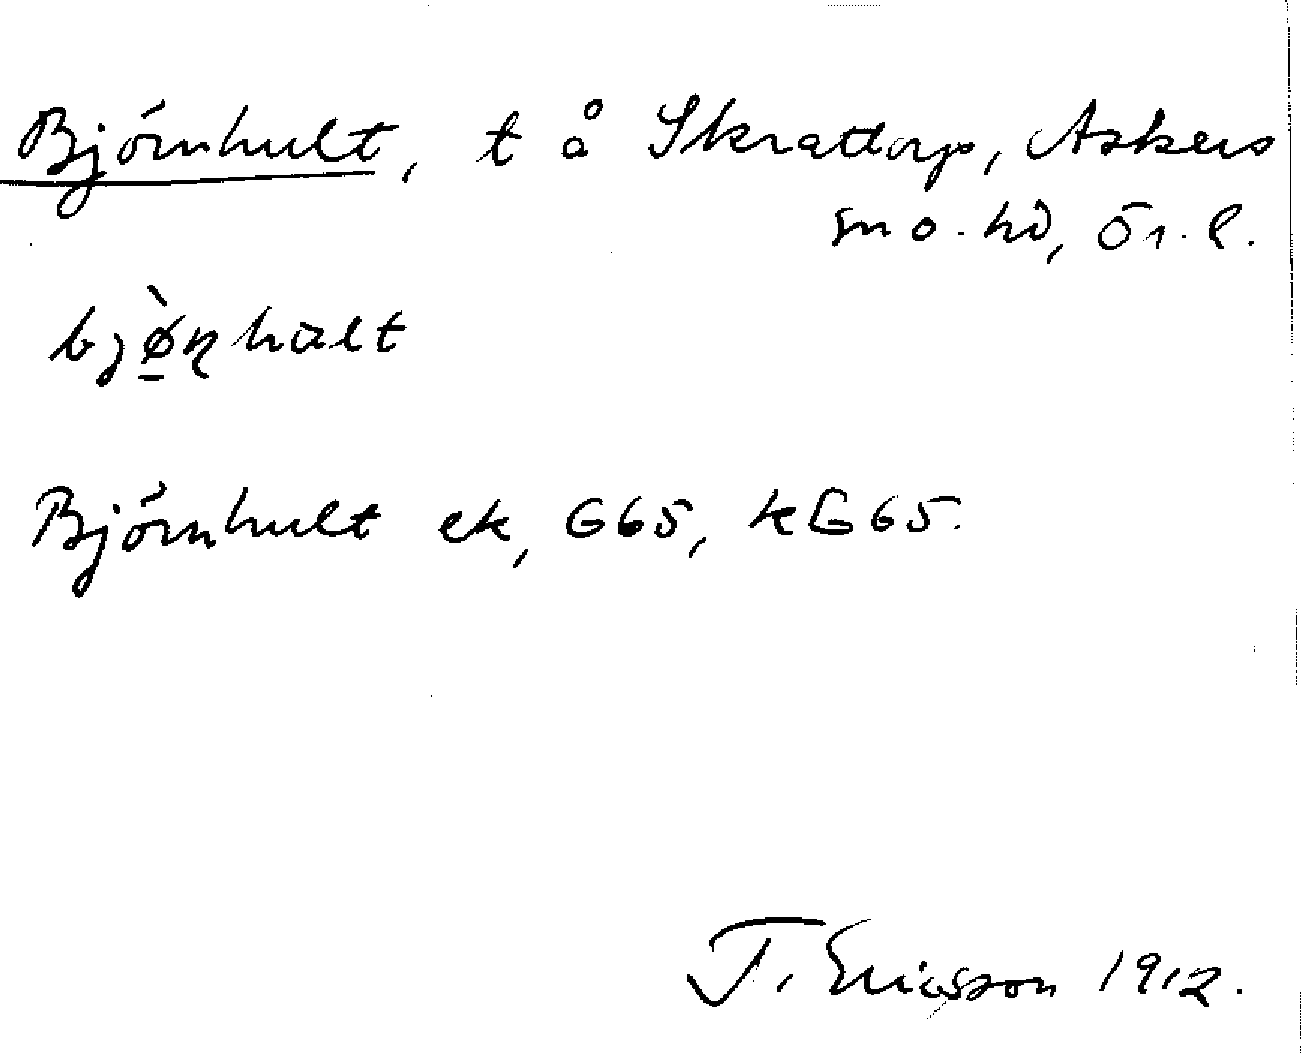 Björnhult, t å Skrattorp, Askers
sn o. hd, Ör. l.
bjø̠̀ɳhalt
Björnhult ek, G65, kG65.
T. Ericsson 1912.